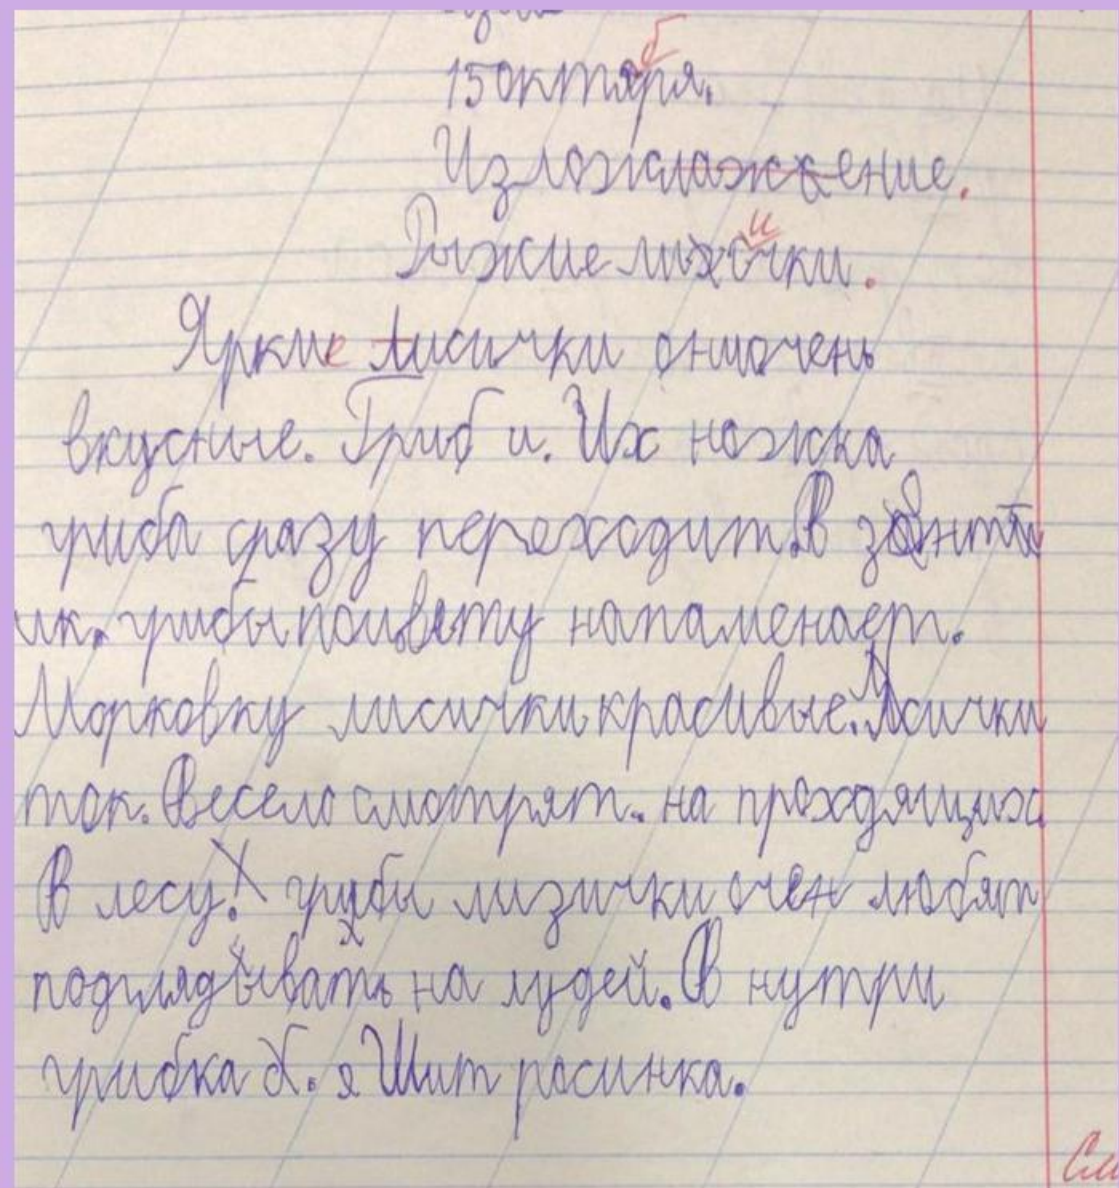 15 октяря.
Изложение.
Рыжие лисички.
Яркие лисички они очень
вкусные. Гриб и. Их ножка
гриба сразу переходит. В зонт
ик. грибы по цвяту напаменает.
Морковку лисички красивые. Лсички
так. Весело смотрят. на проходящих
В лесу! грибы лизички очен любят
подглядывать на лудей. В нутри
грибка б. я Шит расинка.